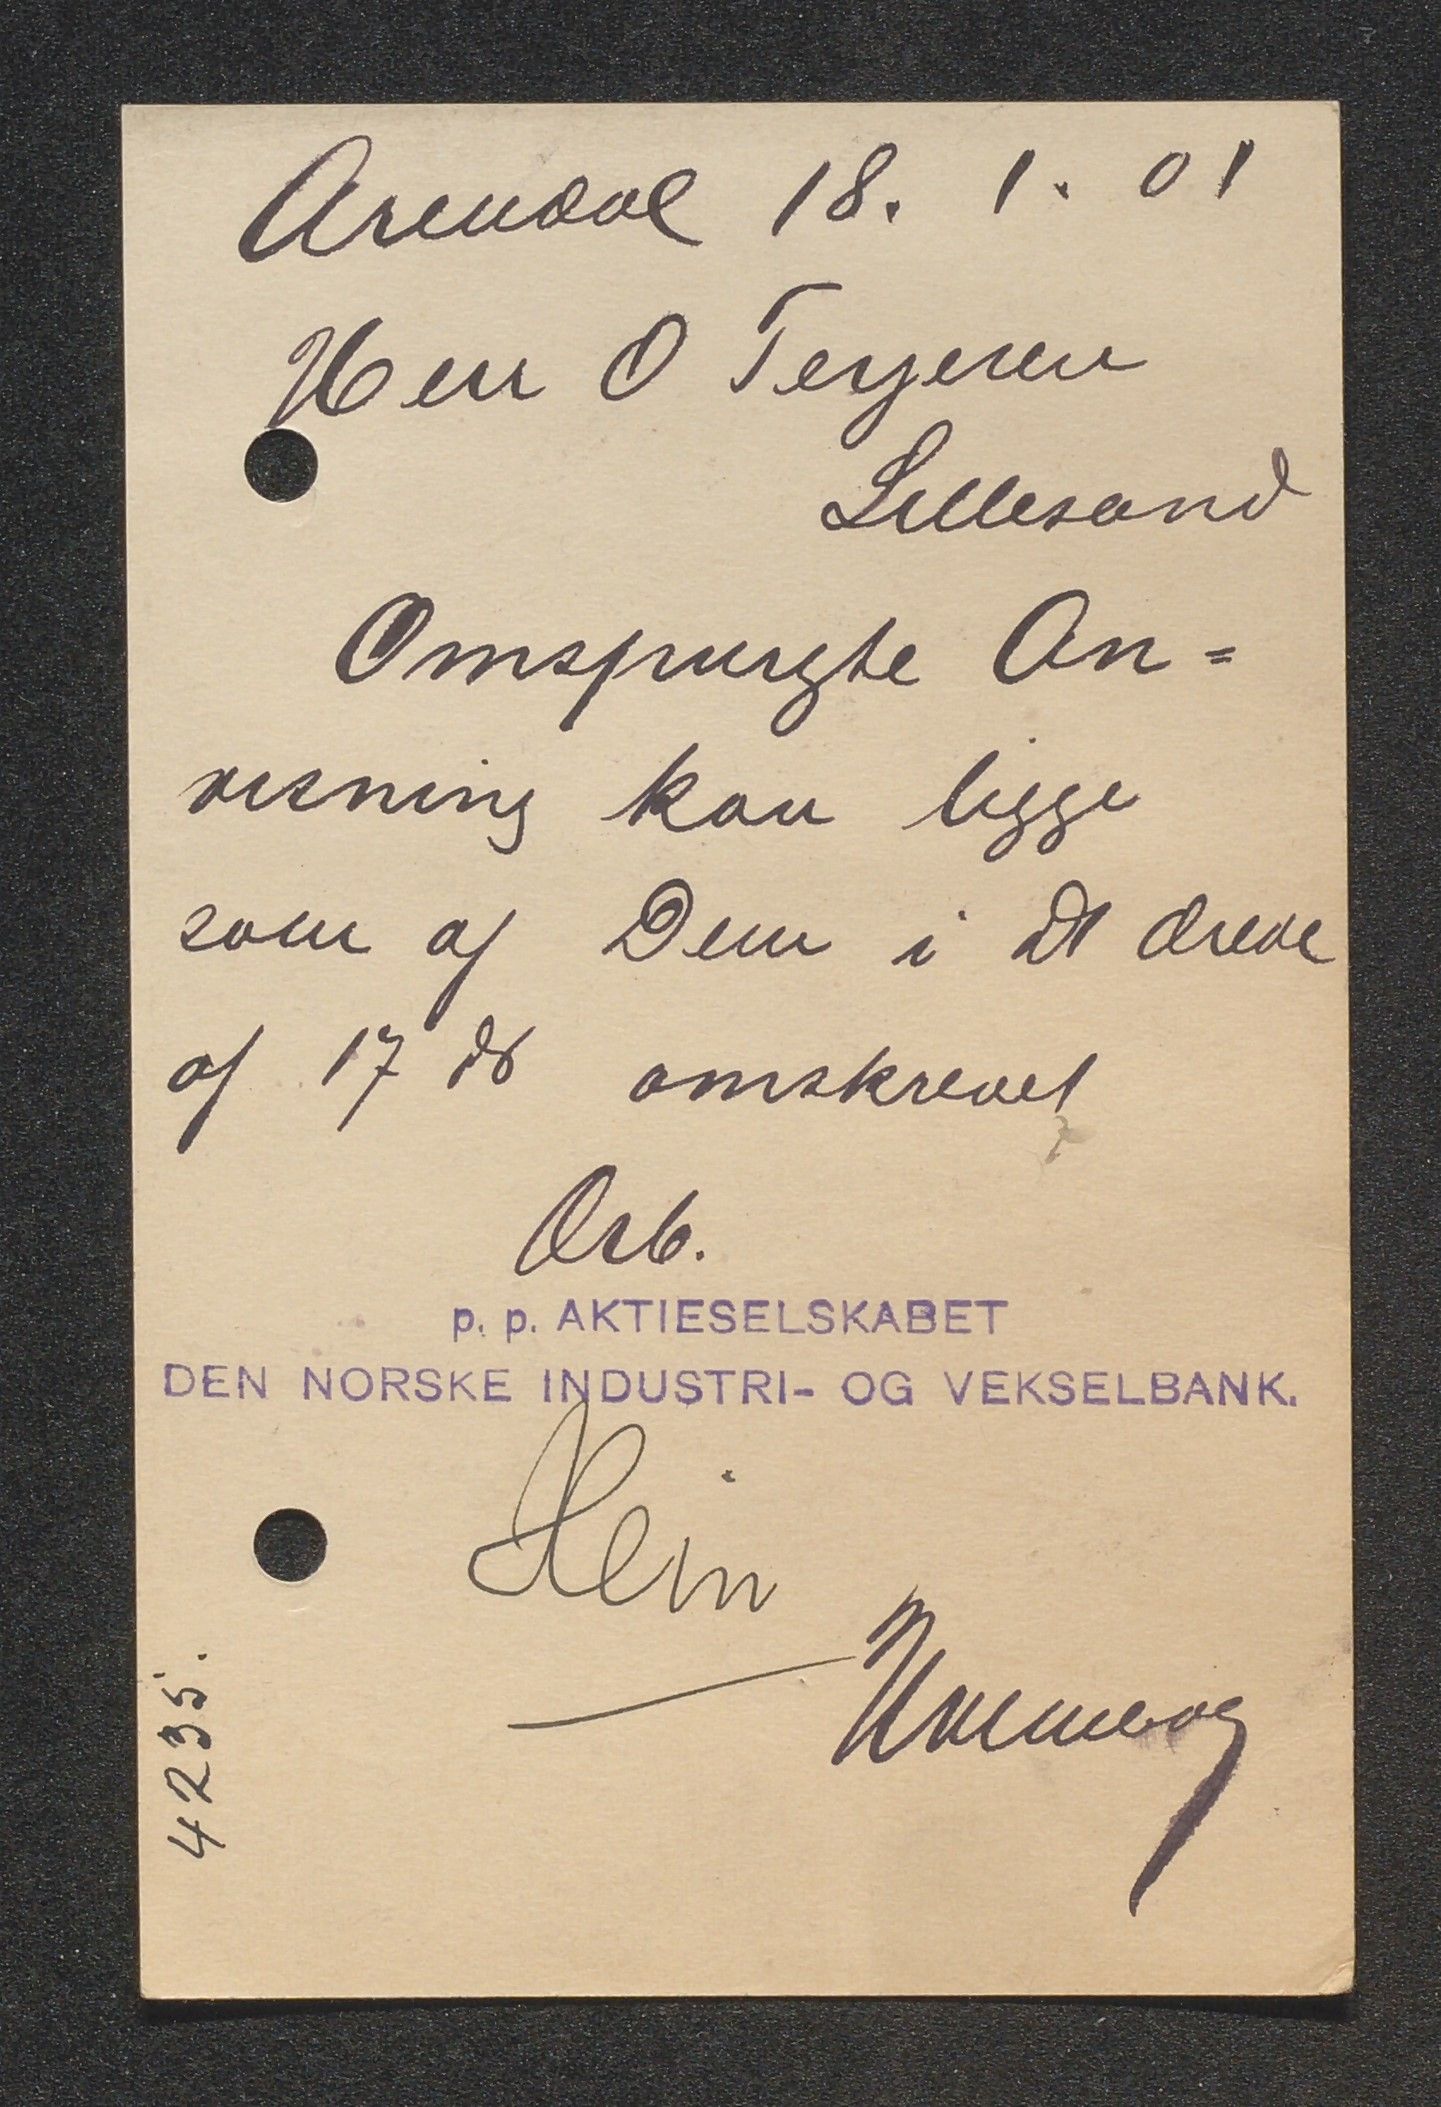 Arendal 18. 1. 01
Herr O Terjesen
Lillesand
Omspurgte An=
visning kan ligge
som af Dem i Dt ærede
af 17 ds omskrevet
Ærb.
p. p. AKTIESELSKABET
DEN NORSKE INDUSTRI- OG VEKSELBANK.
4235.